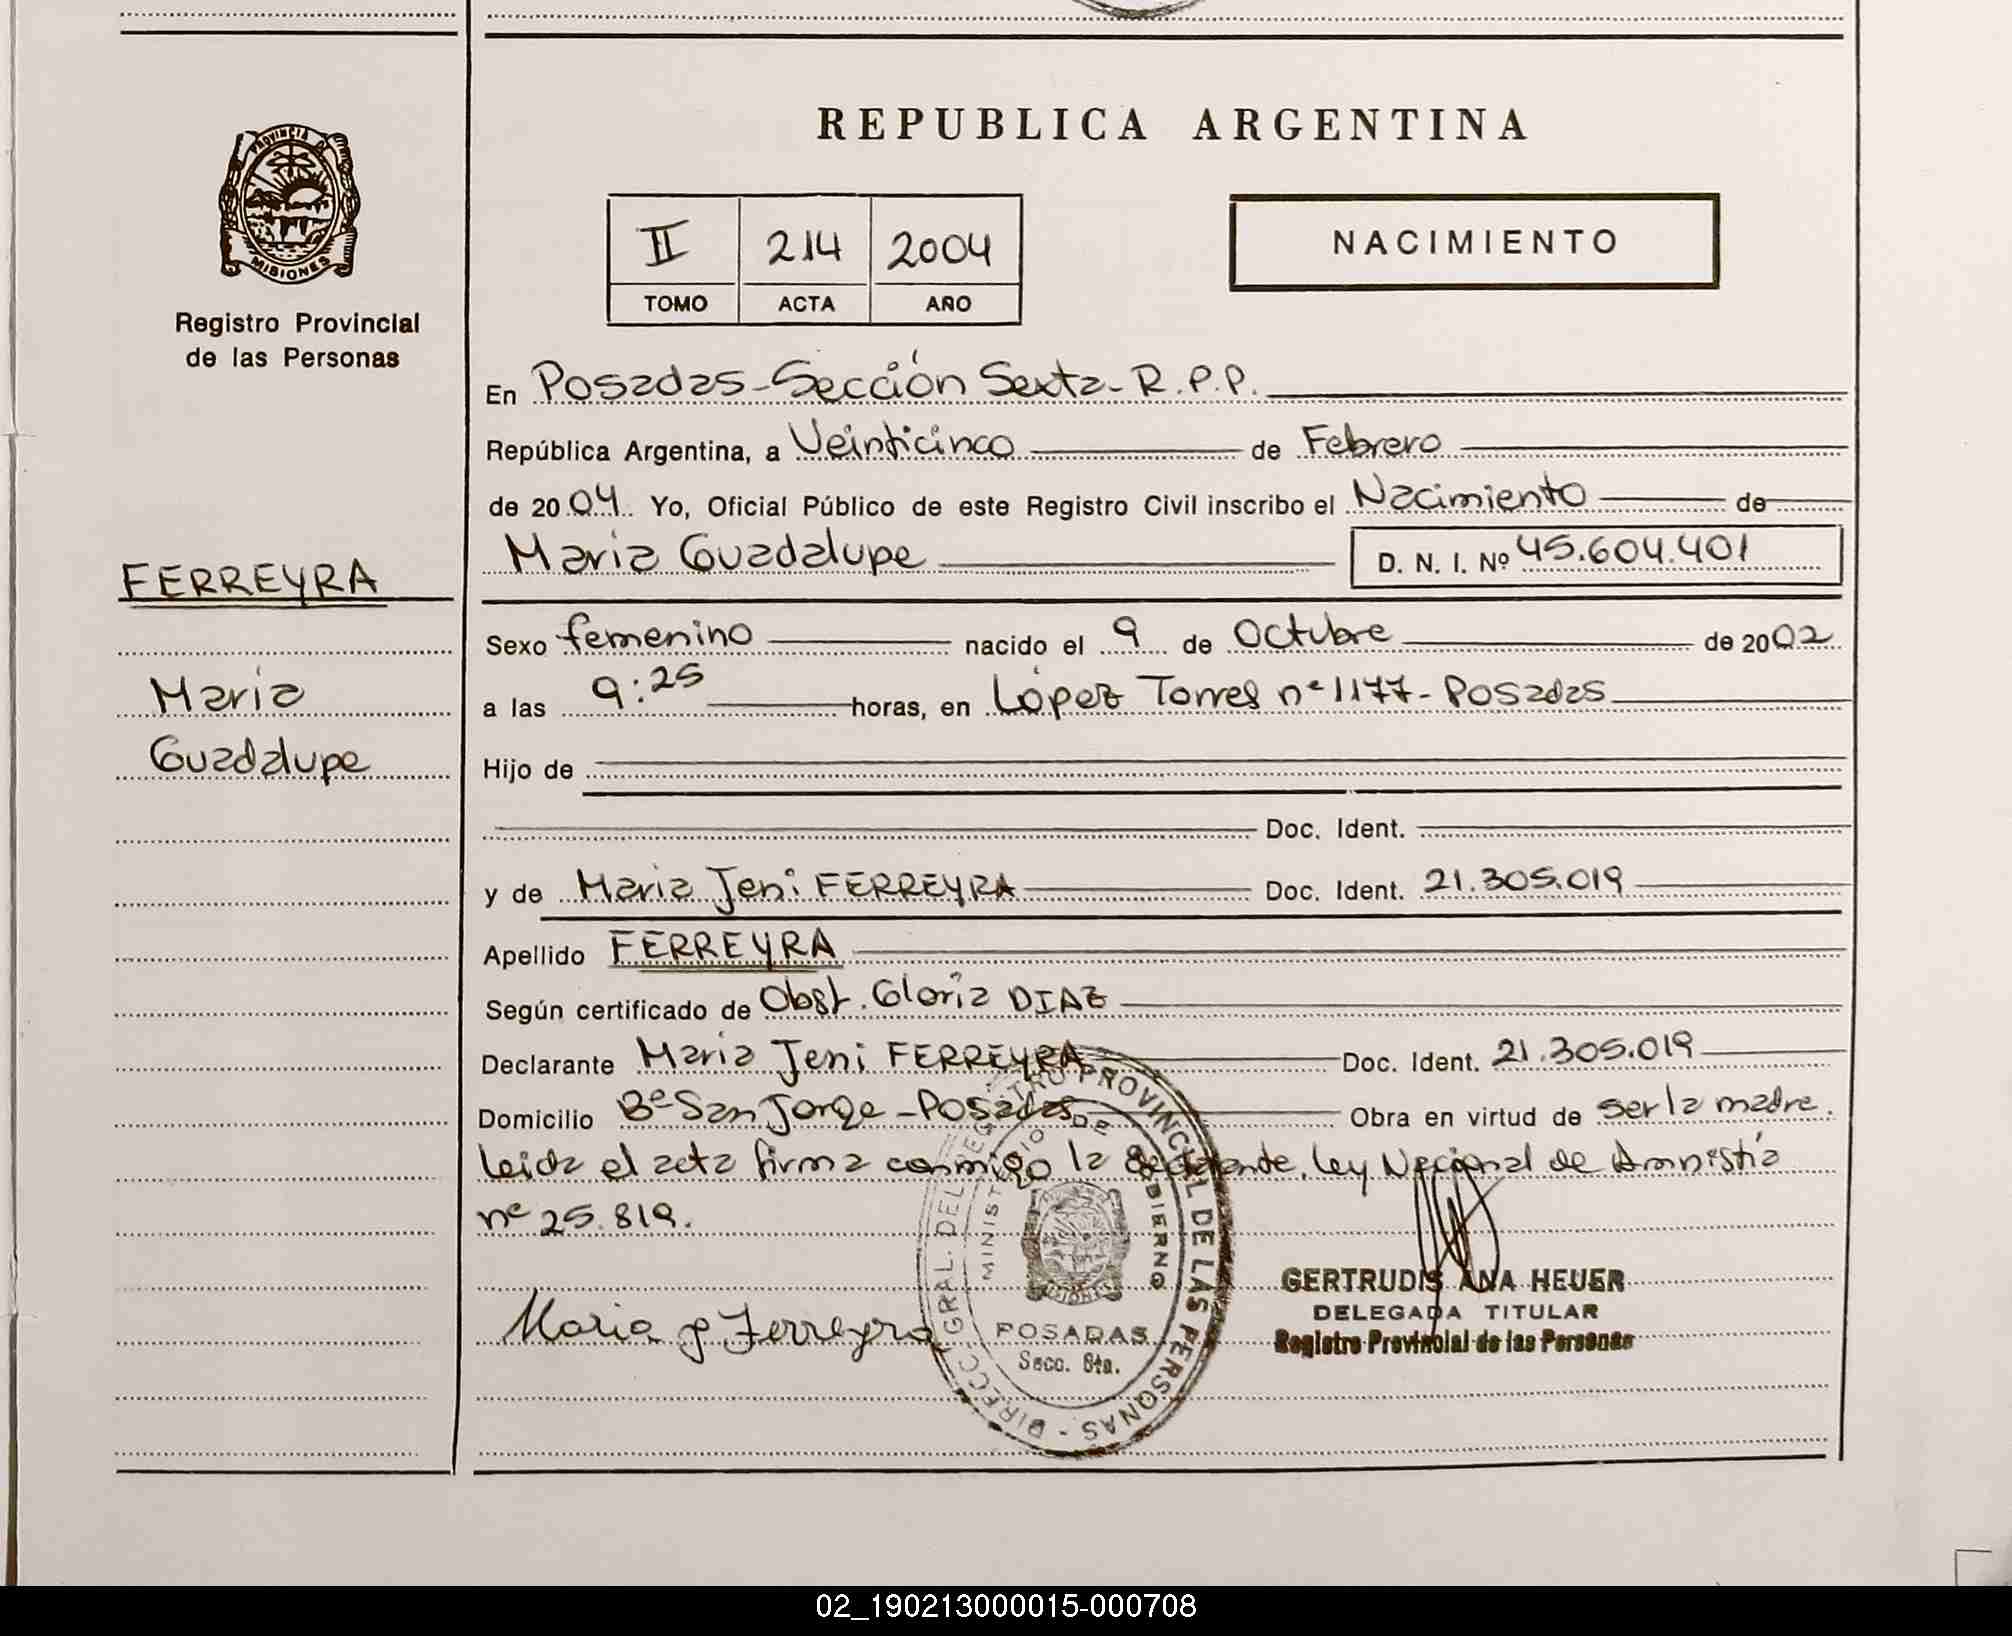 PROVINCIA D
MISIONES
Registro Provincial
de las Personas
FERREYRA
Maria
Guadalupe
REPUBLICA ARGENTINA
II 214 2004
TOMO ACTA AÑO
NACIMIENTO
En Posadas-Sección Sexta-R.P.P.
República Argentina, a Veinticinco de Febrero
de 2004. Yo, Oficial Público de este Registro Civil inscribo el Nacimiento de
Maria Guadalupe D. N. I. Nº 45.604.401
Sexo femenino nacido el 9 de Octubre de 2002
a las 9:25 horas, en López Torres nº 1177-Posadas
Hijo de
Doc. Ident.
y de Maria Jeni FERREYRA Doc. Ident. 21.305.019
Apellido FERREYRA
Según certificado de Obst. Gloria DIAZ
Declarante Maria Jeni FERREYRA Doc. Ident. 21.305.019
Domicilio Bº San Jorge-Posadas Obra en virtud de ser la madre.
Leida el acta firma conmigo la declarante. Ley Nacional de Amnistía
nº 25.819.
Maria J Ferreyra
DIRECC. GRAL. DEL REGISTRO PROVINCIAL DE LAS PERSONAS -
MINISTERIO DE GOBIERNO
MISIONES
POSADAS
Secc. 6ta.
GERTRUDIS ANA HEUER
DELEGADA TITULAR
Registro Provincial de las Personas
02_190213000015-000708